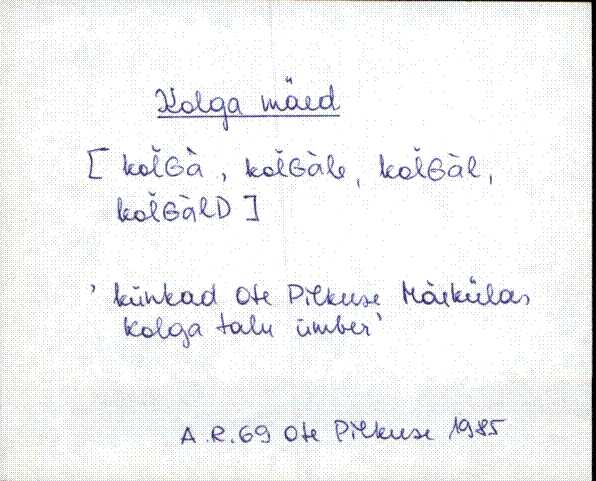 Kolga mäed
[ kol̆Gà, kol̆Gàle, kol̆Gàl,
kol̆GàlD ]
' künkad Ote Pilkuse Mäekülas
Kolga talu ümber'
A.R.69 Ote Pilkuse 1985